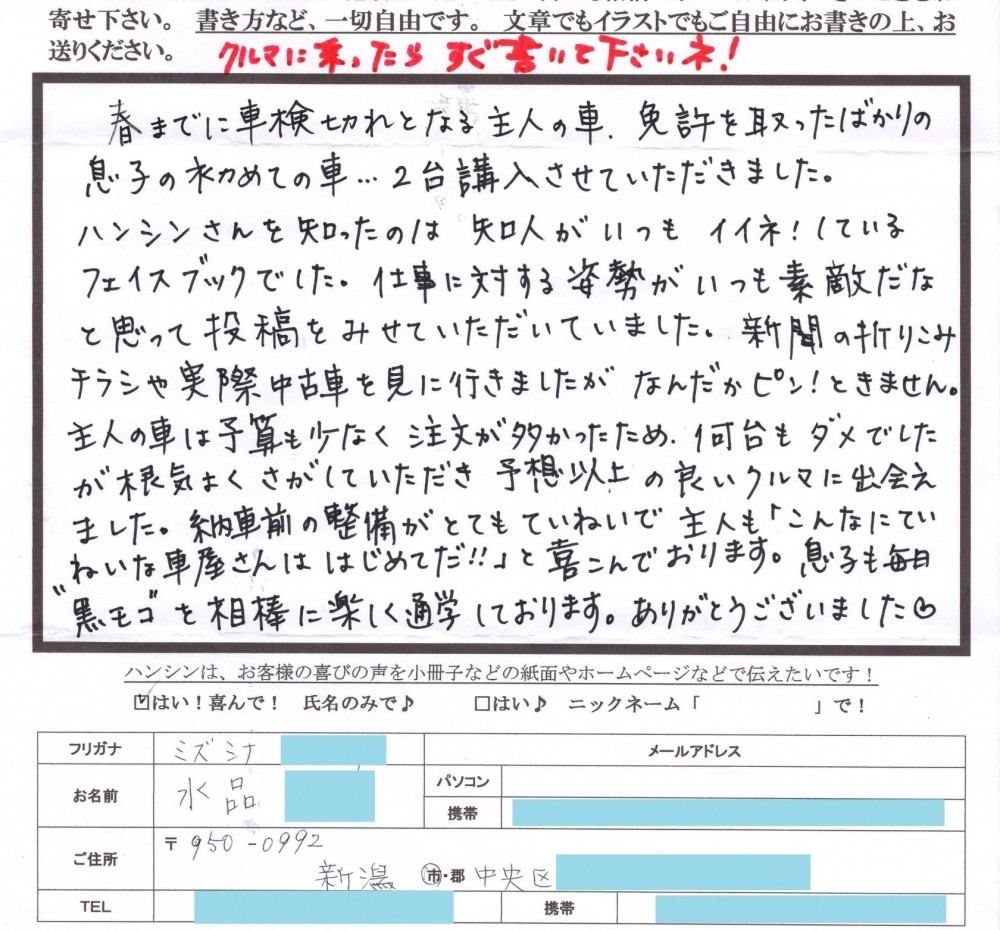 寄せ下さい。書き方など、一切自由です。文章でもイラストでもご自由にお書きの上、お
送りください。 クルマに乗ったら すぐ書いて下さいネ！
春までに車検切れとなる主人の車、免許を取ったばかりの
息子の初めての車…2台講入させていただきました。
ハンシンさんを知ったのは 知人がいつも イイネ！している
フェイスブックでした。仕事に対する姿勢がいつも素敵だな
と思って投稿をみせていただいていました。新聞の折りこみ
チラシや実際中古車を見に行きましたが なんだかピン！ときません。
主人の車は予算も少なく 注文が多かったため、何台も ダメでした
が根気よく さがしていただき 予想以上の良いクルマに出会え
ました。納車前の整備がとてもていねいで 主人も「こんなにてい
ねいな車屋さんは はじめてだ!!」と喜こんでおります。息子も毎日
"黒モコ"を相棒に楽しく通学しております。ありがとうございました♡
ハンシンは、お客様の喜びの声を小冊子などの紙面やホームページなどで伝えたいです！
☑はい！喜んで！ 氏名のみで♪ □はい♪ ニックネーム「 」で！
フリガナ ミズシナ メールアドレス
お名前 水品 パソコン
携帯
ご住所 〒950-0992
新潟 市・郡 中央区
TEL 携帯